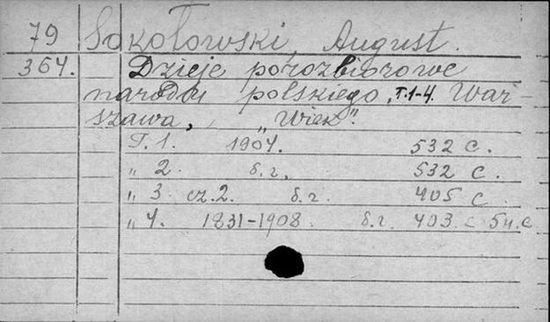 79 Sokołowski, August.
364. Dzieje porozbiorowe
narodu polskiego, T.1-4. War-
szawa, "Wiek".
T. 1. 1904. 532 c.
" 2. б. г. 532 c.
" 3. cz. 2. б. г. 405 c
" 4. 1831-1908. б. г. 403 c 54 c